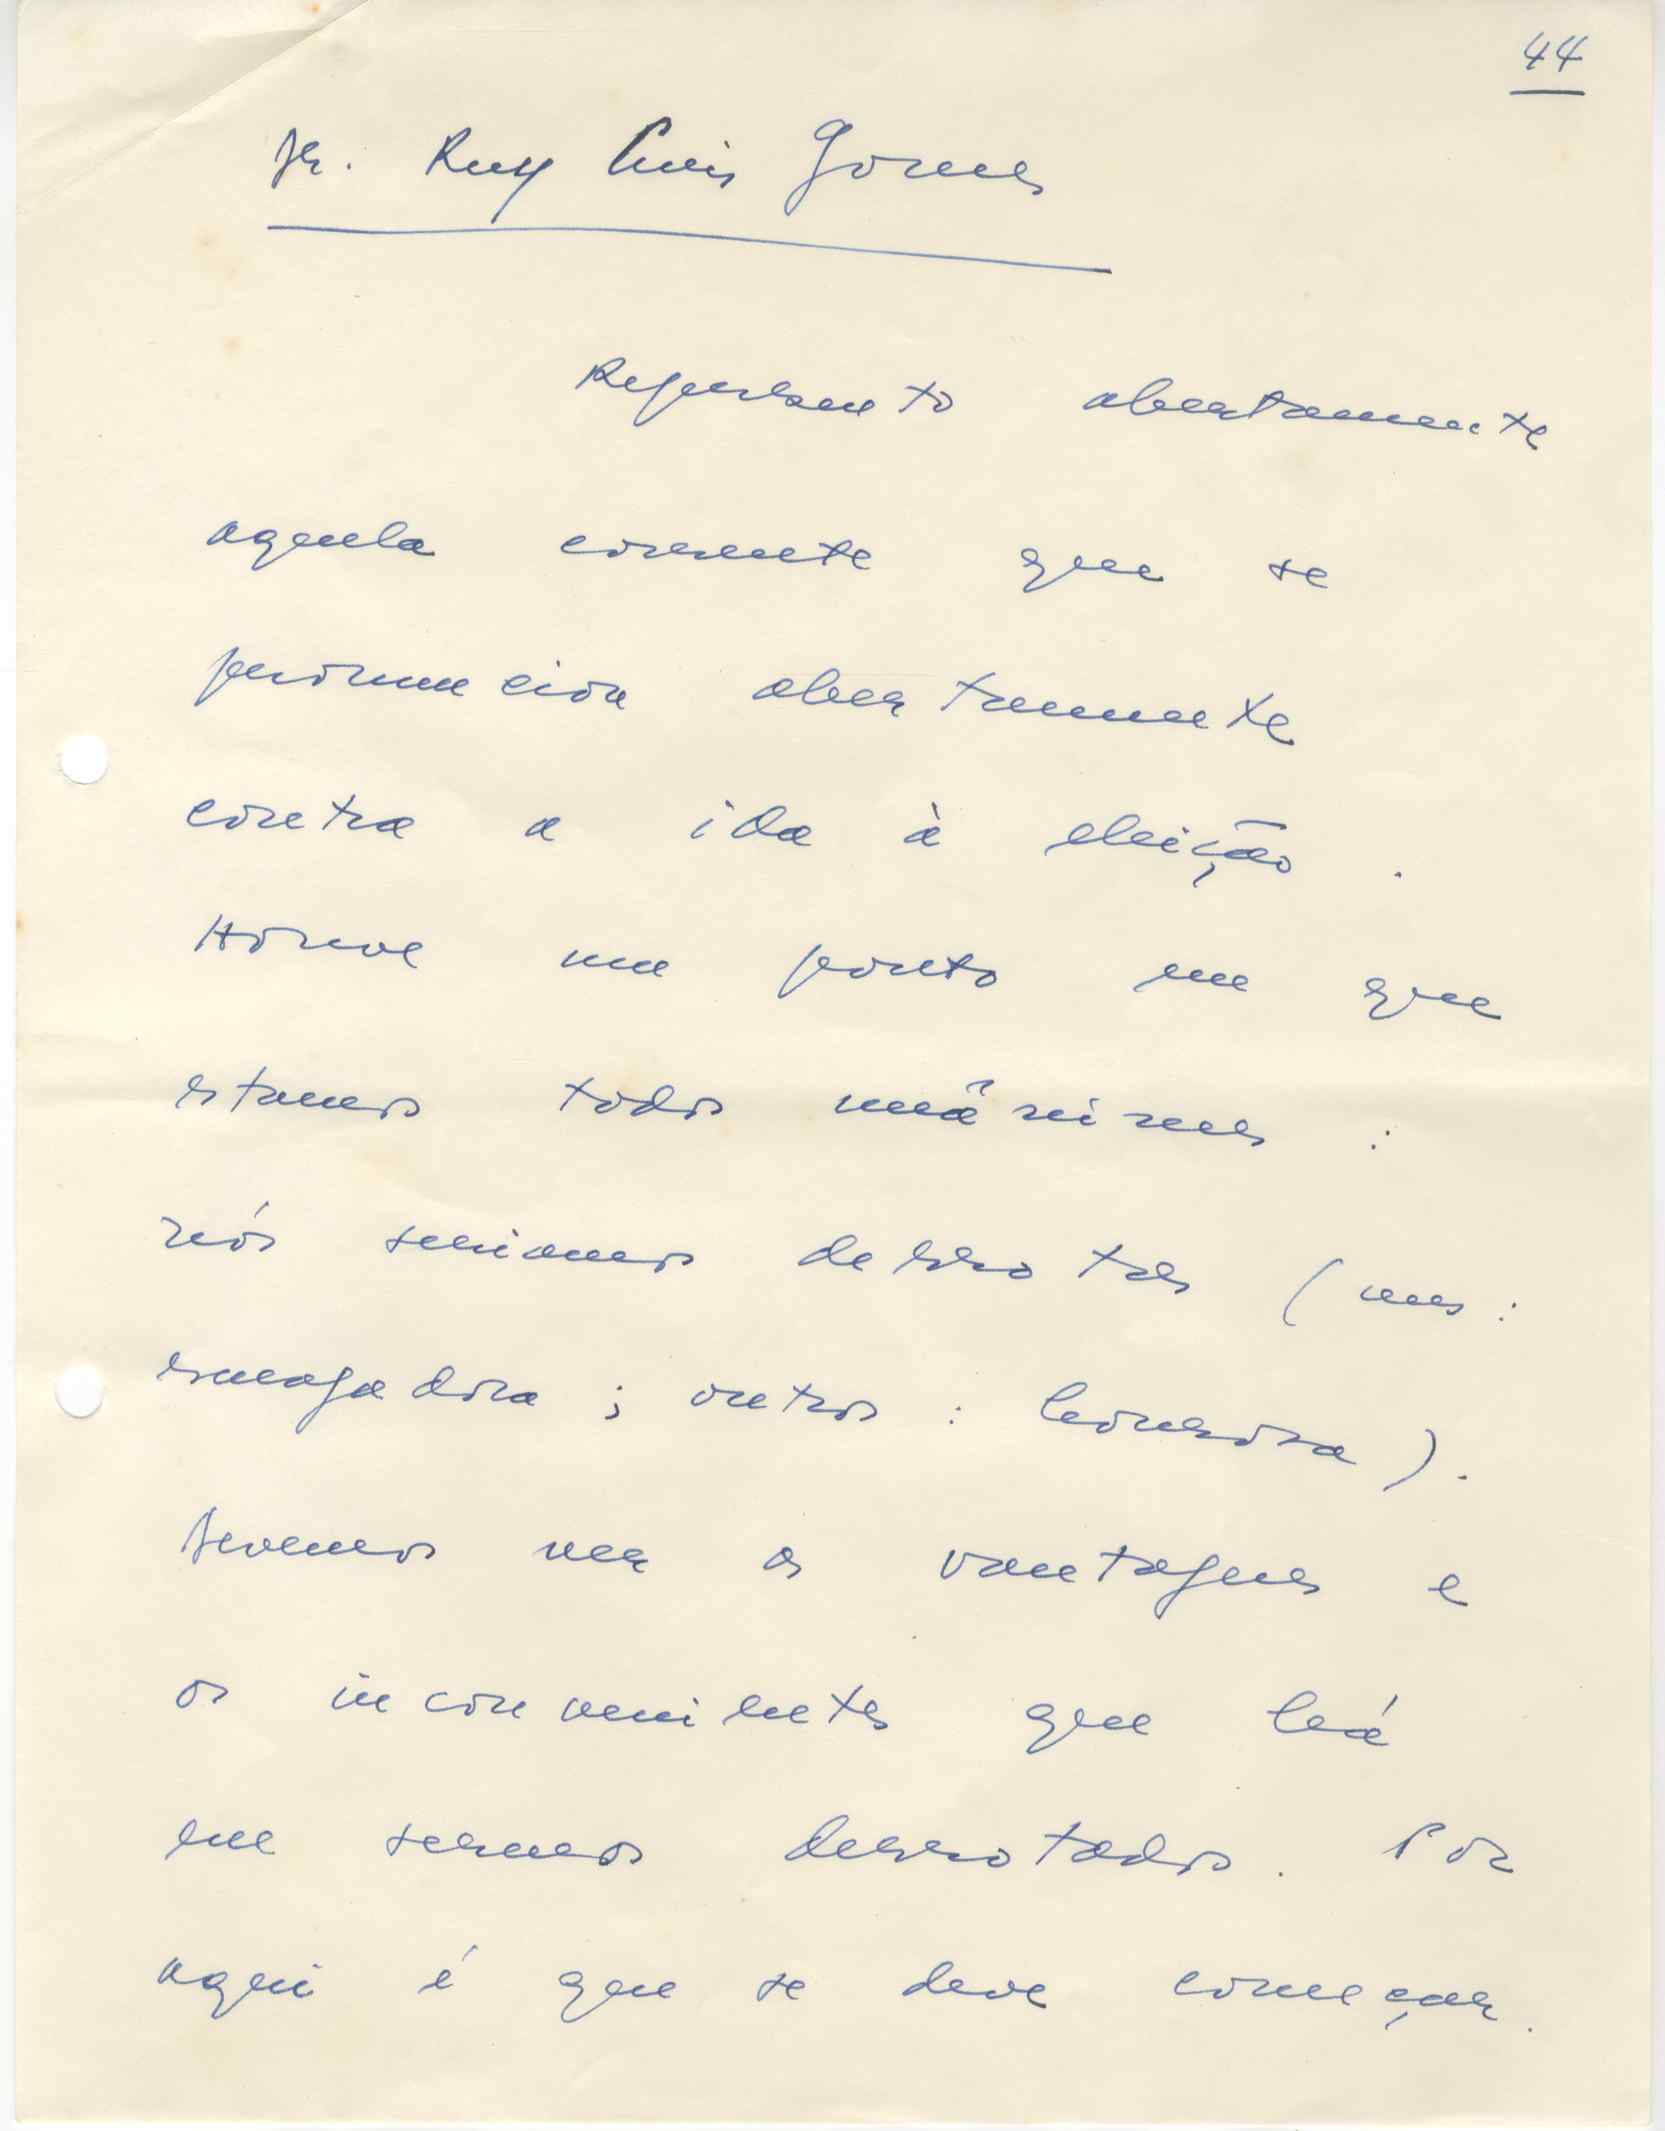 44
Dr. Ruy Luis Gomes
Represento abertamente
aquela corrente que se
pronuncia abertamente
contra a ida à eleição.
Houve um ponto em que
estamos todos unânimes:
nós seriamos derrotados (uns:
esmagadora; outros: honrosa).
Devemos ver as vantagens e
os inconvenientes que há
em sermos derrotados. Por
aqui é que se deve começar.